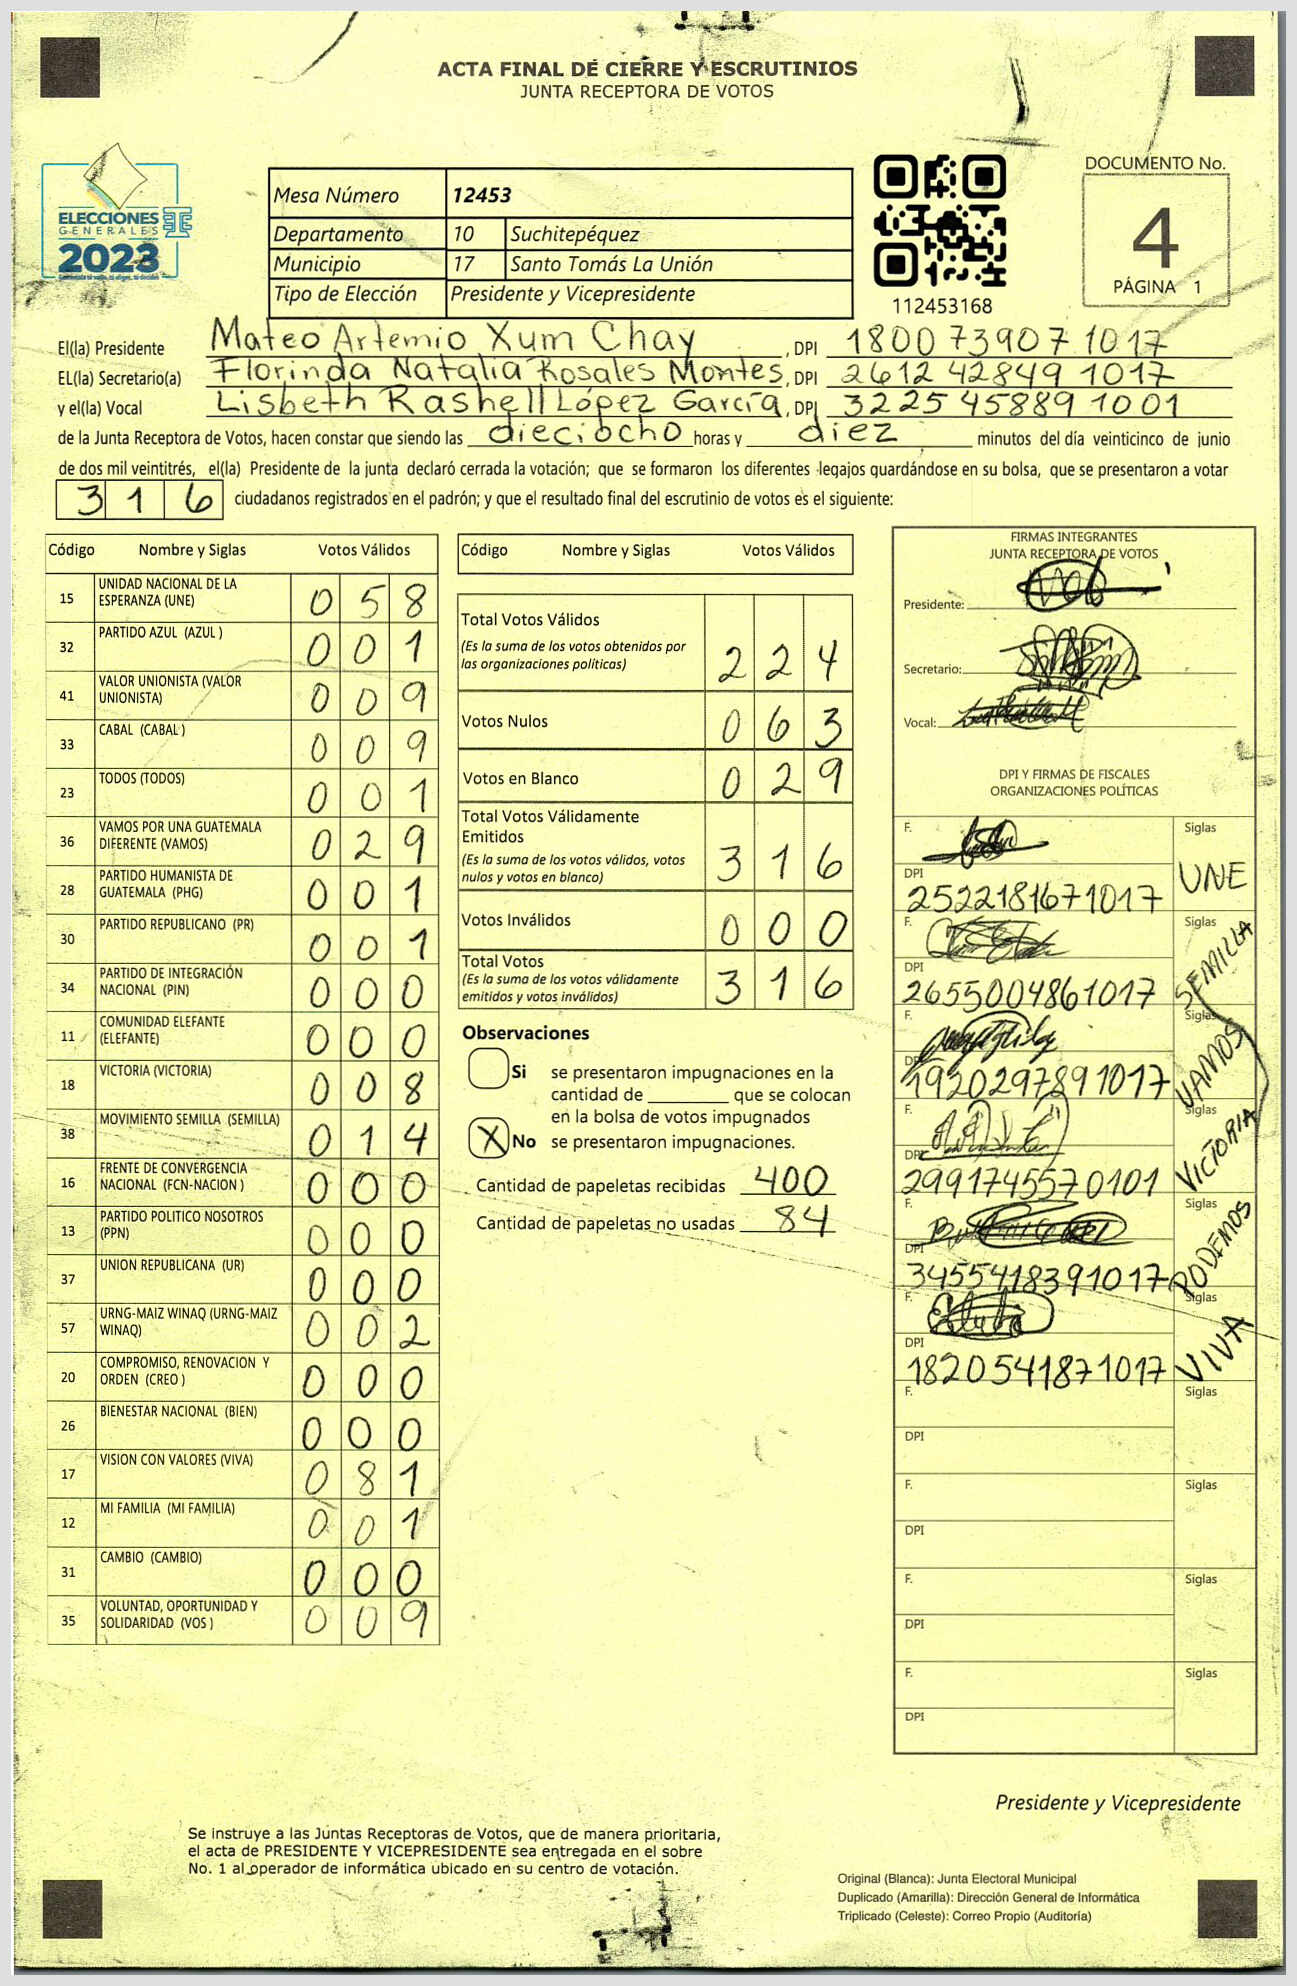 ACTA FINAL DE CIERRE Y ESCRUTINIOS
JUNTA RECEPTORA DE VOTOS
ELECCIONES
GENERALES
2023
Mesa Número 12453
Departamento 10 Suchitepéquez
Municipio 17 Santo Tomás La Unión
Tipo de Elección Presidente y Vicepresidente
112453168
DOCUMENTO No.
4
PÁGINA 1
El(la) Presidente Mateo Artemio Xum Chay, DPI 1800 73907 1017
EL(la) Secretario(a) Florinda Natalia Rosales Montes, DPI 2612 42849 1017
y el(la) Vocal Lisbeth Rashell López García, DPI 3225 45889 1001
de la Junta Receptora de Votos, hacen constar que siendo las dieciocho horas y diez minutos del día veinticinco de junio
de dos mil veintitrés, el(la) Presidente de la junta declaró cerrada la votación; que se formaron los diferentes legajos guardándose en su bolsa, que se presentaron a votar
316 ciudadanos registrados en el padrón; y que el resultado final del escrutinio de votos es el siguiente:
Código Nombre y Siglas Votos Válidos
15 UNIDAD NACIONAL DE LA ESPERANZA (UNE) 058
32 PARTIDO AZUL (AZUL ) 001
41 VALOR UNIONISTA (VALOR UNIONISTA) 009
33 CABAL (CABAL ) 009
23 TODOS (TODOS) 001
36 VAMOS POR UNA GUATEMALA DIFERENTE (VAMOS) 029
28 PARTIDO HUMANISTA DE GUATEMALA (PHG) 001
30 PARTIDO REPUBLICANO (PR) 001
34 PARTIDO DE INTEGRACIÓN NACIONAL (PIN) 000
11 COMUNIDAD ELEFANTE (ELEFANTE) 000
18 VICTORIA (VICTORIA) 008
38 MOVIMIENTO SEMILLA (SEMILLA) 014
16 FRENTE DE CONVERGENCIA NACIONAL (FCN-NACION ) 000
13 PARTIDO POLITICO NOSOTROS (PPN) 000
37 UNION REPUBLICANA (UR) 000
57 URNG-MAIZ WINAQ (URNG-MAIZ WINAQ) 002
20 COMPROMISO, RENOVACION Y ORDEN (CREO ) 000
26 BIENESTAR NACIONAL (BIEN) 000
17 VISION CON VALORES (VIVA) 081
12 MI FAMILIA (MI FAMILIA) 001
31 CAMBIO (CAMBIO) 000
35 VOLUNTAD, OPORTUNIDAD Y SOLIDARIDAD (VOS ) 009
Código Nombre y Siglas Votos Válidos
Total Votos Válidos
(Es la suma de los votos obtenidos por
las organizaciones políticas) 224
Votos Nulos 063
Votos en Blanco 029
Total Votos Válidamente
Emitidos
(Es la suma de los votos válidos, votos
nulos y votos en blanco) 316
Votos Inválidos 000
Total Votos
(Es la suma de los votos válidamente
emitidos y votos inválidos) 316
Observaciones
Si se presentaron impugnaciones en la
cantidad de ________ que se colocan
en la bolsa de votos impugnados
X No se presentaron impugnaciones.
Cantidad de papeletas recibidas 400
Cantidad de papeletas no usadas 84
FIRMAS INTEGRANTES
JUNTA RECEPTORA DE VOTOS
Presidente:
Secretario:
Vocal:
DPI Y FIRMAS DE FISCALES
ORGANIZACIONES POLÍTICAS
F. Siglas
DPI UNE
2522181671017
F. Siglas
DPI SEMILLA
2655004861017
F. Siglas
DPI VAMOS
1920297891017
F. Siglas
DPI VICTORIA
2991745570101
F. Siglas
DPI PODEMOS
3455418391017
F. Siglas
DPI VIVA
1820541871017
F. Siglas
DPI
F. Siglas
DPI
F. Siglas
DPI
F. Siglas
DPI
Presidente y Vicepresidente
Se instruye a las Juntas Receptoras de Votos, que de manera prioritaria,
el acta de PRESIDENTE Y VICEPRESIDENTE sea entregada en el sobre
No. 1 al operador de informática ubicado en su centro de votación.
Original (Blanca): Junta Electoral Municipal
Duplicado (Amarilla): Dirección General de Informática
Triplicado (Celeste): Correo Propio (Auditoría)